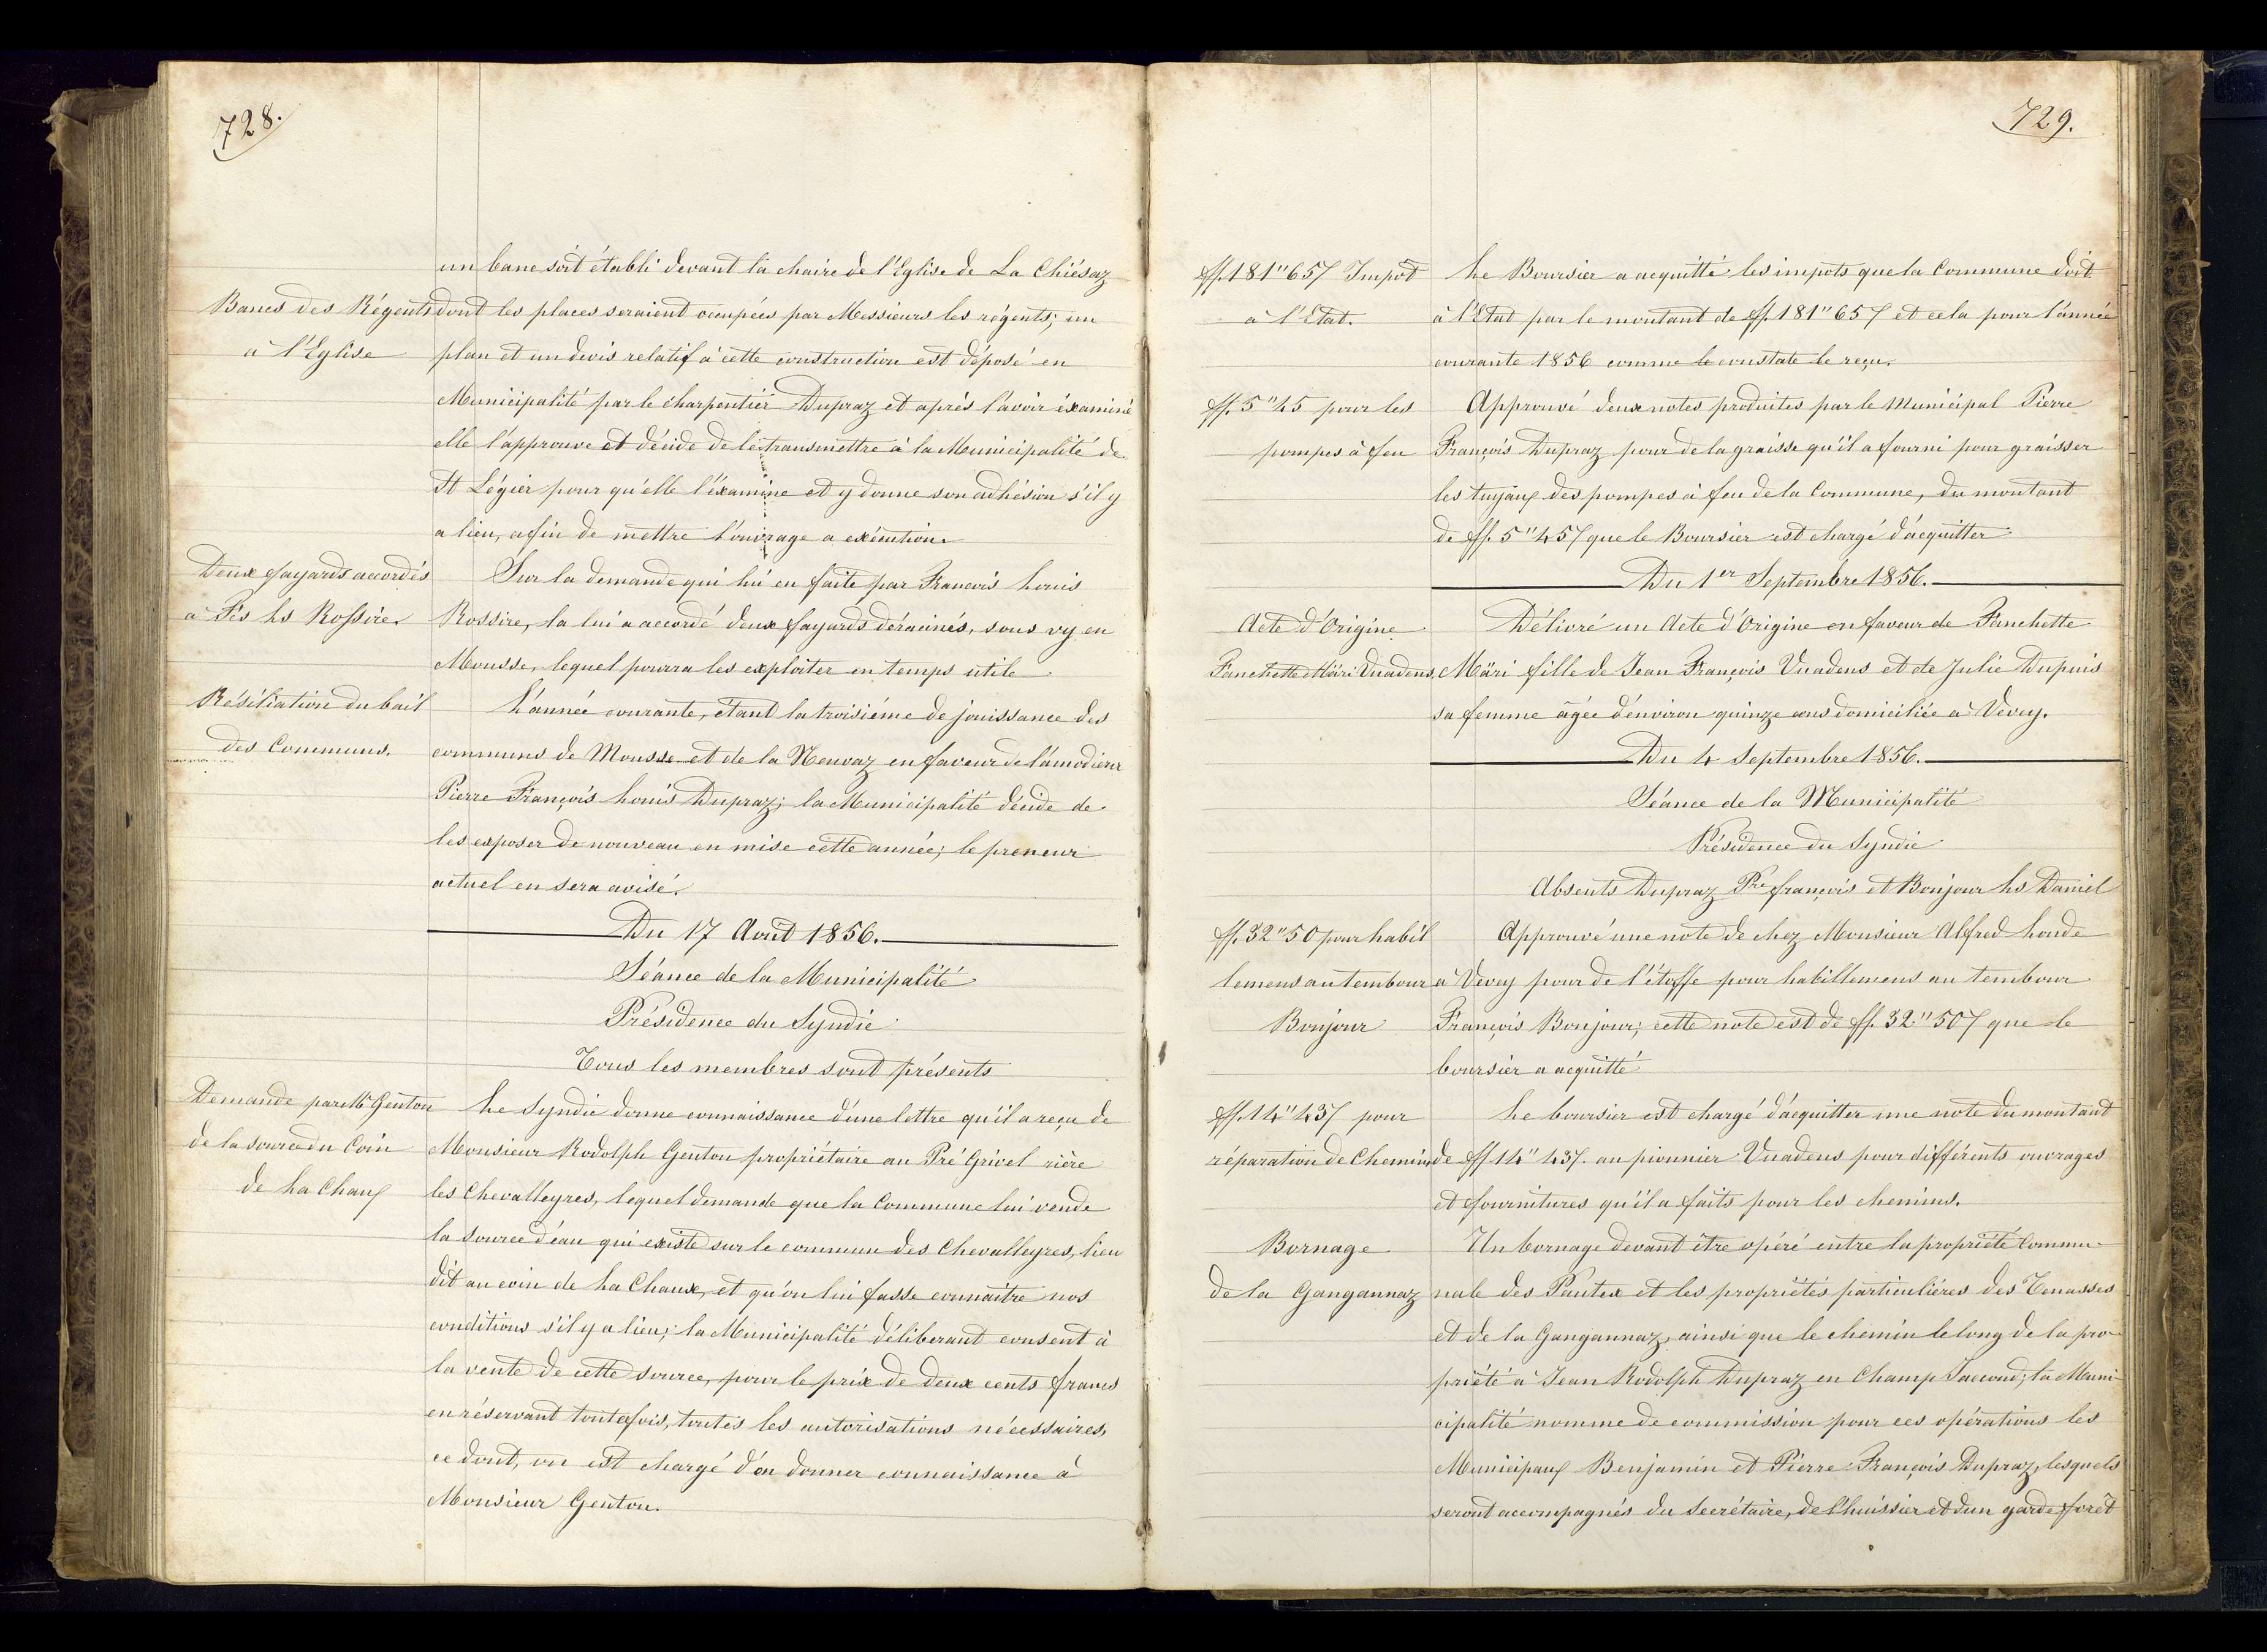 728.
un banc soit établi devant la chaire de l'Eglise de La Chiésaz
Bancs des Régents dont les places seraient occupées par Messieurs les régents; un
à l'Eglise plan et un devis relatif à cette construction est déposé en
Municipalité par le charpentier Dupraz et après l'avoir éxaminé
elle l'approuve et décide de le transmettre à la Municipalité de
St Légier pour qu'elle l'éxamine et y donne son adhésion s'il y
a lieu, afin de mettre l'ouvrage a exécution.
Deux fayards accordés Sur la demande qui lui en faite par François Louis
a Fçs Ls Rossire. Rossire, la lui a accordé deux fayards déracinés, sous vy en
Mousse, lequel pourra les exploiter en temps utile
Résiliation du bail L'année courante, étant la troisiéme de jouissance des
des Communs. communs de Mousse et de la Neuvaz en faveur de l'amodieur
Pierre François Louis Dupraz; la Municipalité décide de
les exposer de nouveau en mise cette année; le preneur
actuel en sera avisé.
Du 17 Août 1856.
Séance de la Municipalité
Présidence du Syndic
Tous les membres sont présents
Demande par Mr Genton Le Syndic donne connaissance d'une lettre qu'il a reçu de
de la source du Coin Monsieur Rodolph Genton propriétaire au Pré Grivel rière
de La Chaux les Chevalleyres, lequel demande que la Commune lui vende
la source d'eau qui existe sur le commun des Chevalleyres, lieu
dit au coin de La Chaux, et qu'on lui fasse connaître nos
conditions s'il y a lieu; la Municipalité déliberant consent à
la vente de cette source, pour le prix de deux cents francs
en réservant toutefois, toutes les autorisations nécessaires,
ce dont, on est chargé d'en donner connaissance à
Monsieur Genton.
729.
ff. 181"65/ Impôt Le Boursier a acquitté les impots que la Commune doit
à l'Etat. à l'Etat par le montant de ff. 181"65/ et cela pour l'année
courante 1856 comme le constate le reçu.
ff. 5"45 pour les Approuvé deux notes produites par le Municipal Pierre
pompes à feu François Dupraz pour de la graisse qu'il a fourni pour graisser
les tuyaux des pompes à feu de la Commune, du montant
de ff. 5"45/ que le Boursier est chargé d'acquitter
Du 1er Septembre 1856.
Acte d'Origine Délivré un Acte d'Origine en faveur de Fanchette
Fanchette Märi Vuadens, Märi fille de Jean François Vuadens et de Julie Dupuis
sa femme âgée d'environ quinze ans domiciliée à Vevey.
Du 4 Septembre 1856.
Séance de la Municipalité
Présidence du Syndic
Absents Dupraz Pre françois et Bonjour Ls Daniel
ff. 32"50 pour habil Approuvé une note de chez Monsieur Alfred Loude
lemens au tembour a Vevey pour de l'étoffe pour habillemens au tembour
Bonjour François Bonjour; cette note est de ff. 32"50/ que le
boursier a acquitté
ff. 14"43/ pour Le boursier est chargé d'acquitter une note du montant
réparation de Chemins de ff 14"43/. au pionnier Vuadens pour différents ouvrages
et fournitures qu'il a faits pour les chemins.
Bornage Un bornage devant être opéré entre la propriété Commu-
de la Gangannaz nale des Pautex et les propriétés particulières des Tenasses
et de la Gangannaz, ainsi que le chemin le long de la pro-
priété à Jean Rodolph Dupraz en Champ Jaccoud; la Muni-
cipalité nomme de commission pour ces opérations les
Municipaux Benjamin et Pierre François Dupraz, lesquels
seront accompagnés du Secrétaire, de l'huissier et d'un garde forêt